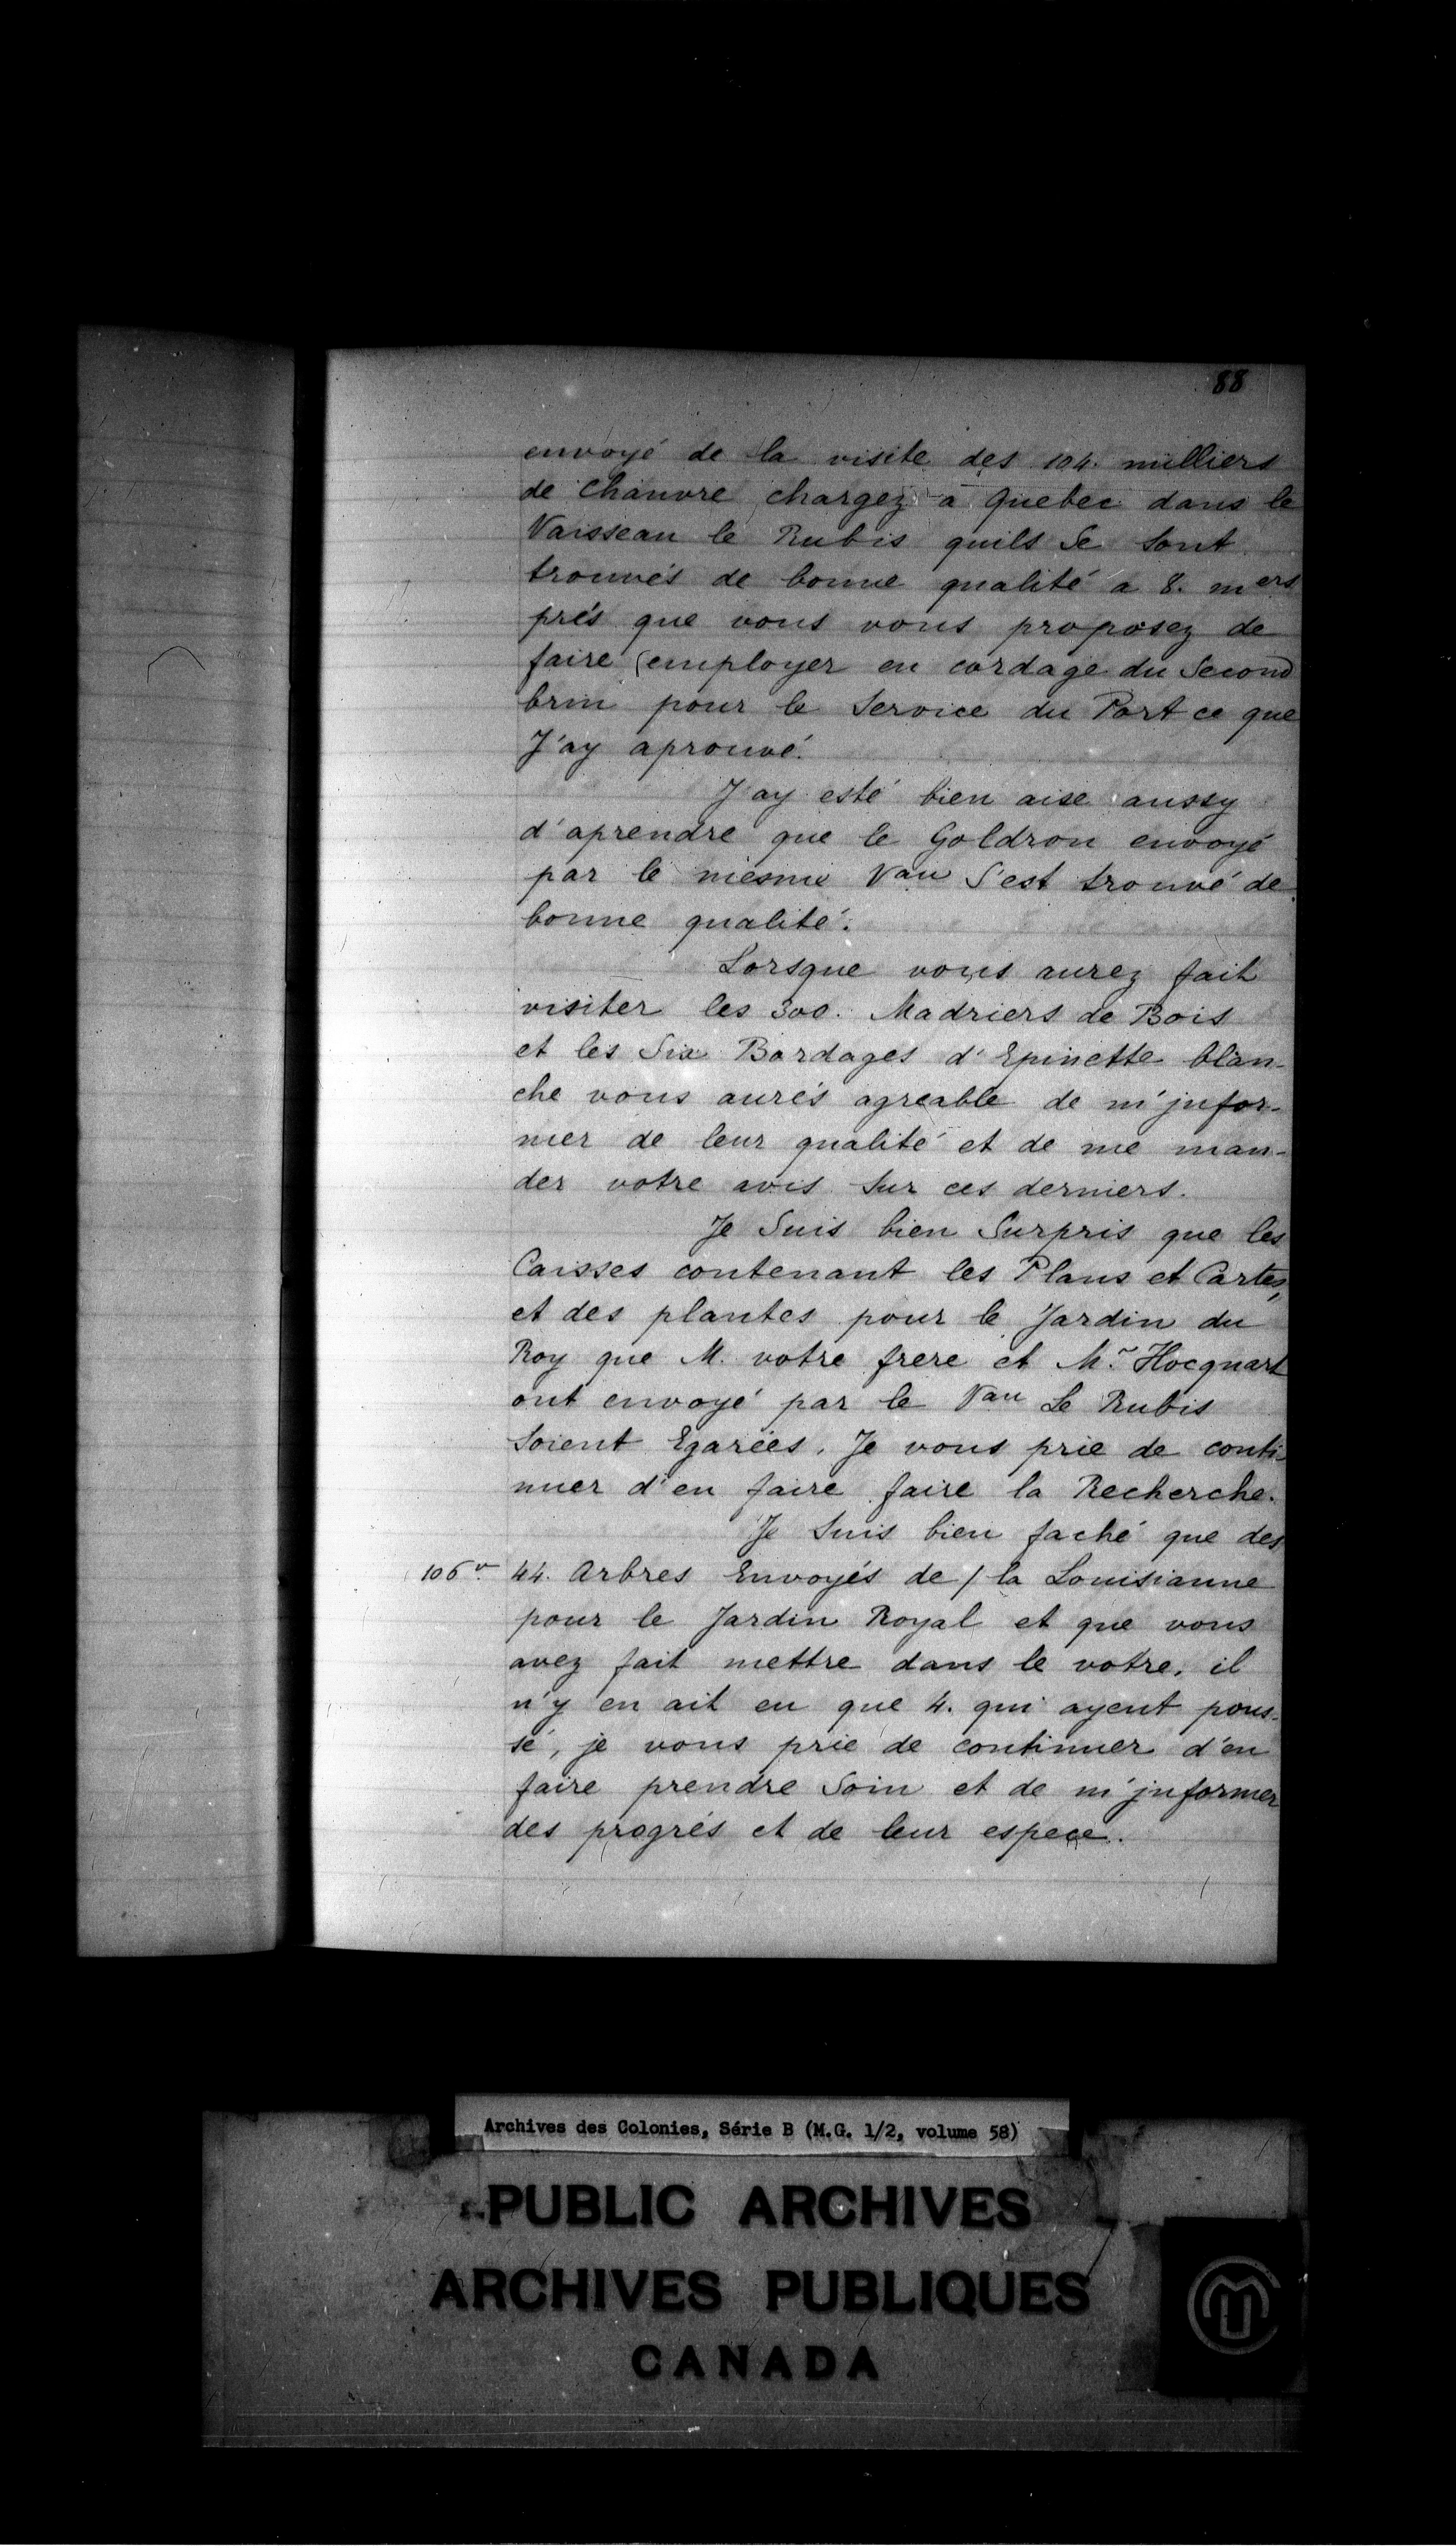 88
envoyé de la visite des 104. milliers
de Chanvre chargez a Quebec dans le
Vaisseau le Rubis quils Se Sont
trouvés de bonne qualité a 8. mers
prés que vous vous proposez de
faire employer en cordage du Second
brin pour le Service du Port ce que
J'ay aprouvé.
J'ay esté bien aise aussy
d'aprendre que le Goldron envoyé
par le mesme Vau S'est trouvé de
bonne qualité.
Lorsque vous aurez fait
visiter les 300. Madriers de Bois
et les Six Bordages d'Epinette blan-
che vous aurés agreable de m'jnfor-
mer de leur qualité et de me man-
der votre avis Sur ces derniers.
Je Suis bien Surpris que les
Caisses contenant les Plans et Cartes,
et des plantes pour le Jardin du
Roy que M. votre frere et Mr Hocquart
ont envoyé par le Vau Le Rubis
Soient Egarées. Je vous prie de conti-
nuer d'en faire faire la Recherche.
Je Suis bien faché que des
106v. 44. Arbres Envoyés de / la Louisianne
pour le Jardin Royal et que vous
avez fait mettre dans le votre, il
n'y en ait eu que 4. qui ayent pous-
sé, je vous prie de continuer d'en
faire prendre Soin et de m'jnformer
des progrés et de leur espece.
Archives des Colonies, Série B (M.G. 1/2, volume 58)
PUBLIC ARCHIVES
ARCHIVES PUBLIQUES
CANADA